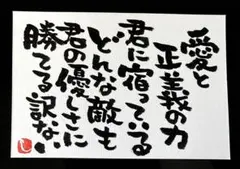 愛と
正義の力
君に宿っている
どんな敵も
君の優しさに
勝てる訳ない